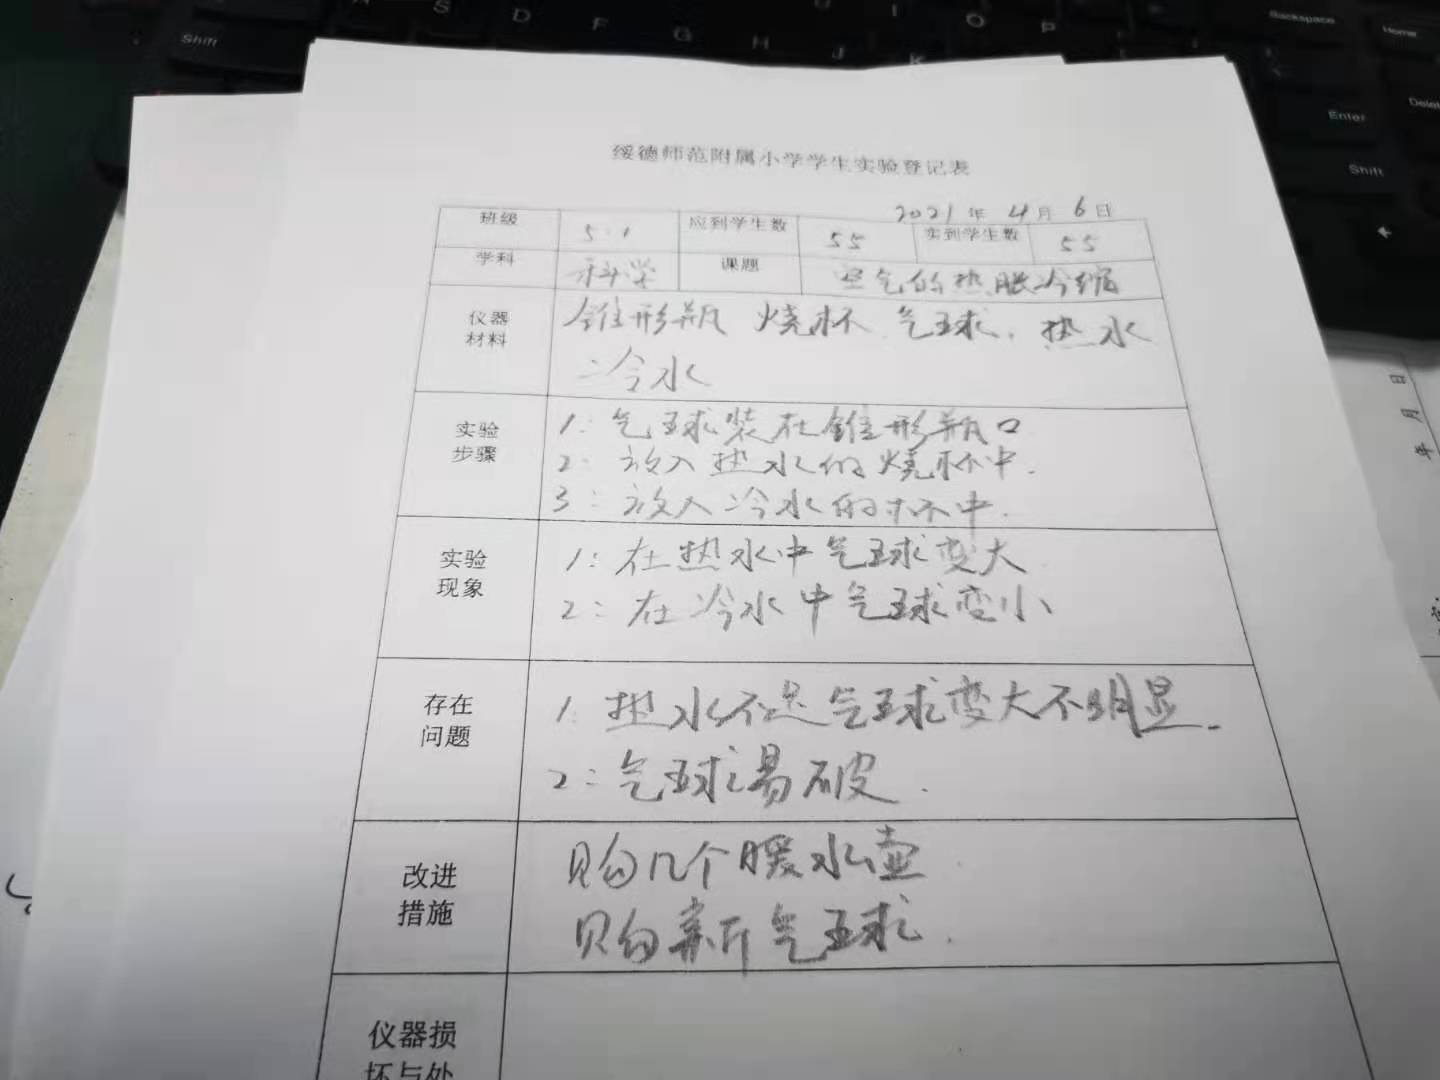 绥德师范附属小学学生实验登记表
2021年4月6日
班级 5.1 应到学生数 55 实到学生数 55
学科 科学 课题 空气的热胀冷缩
仪器材料 锥形瓶 烧杯、气球、热水
、冷水
实验步骤 1:气球装在锥形瓶口
2:放入热水的烧杯中.
3:放入冷水的杯中.
实验现象 1:在热水中气球变大
2:在冷水中气球变小
存在问题 1:热水不足气球变大不明显.
2:气球易破.
改进措施 购几个暖水壶.
购新气球.
仪器损
坏与处
年 月 日
Shift
A S D F G H J K
U I O P
Backspace
Home
Enter
Delete
Shift